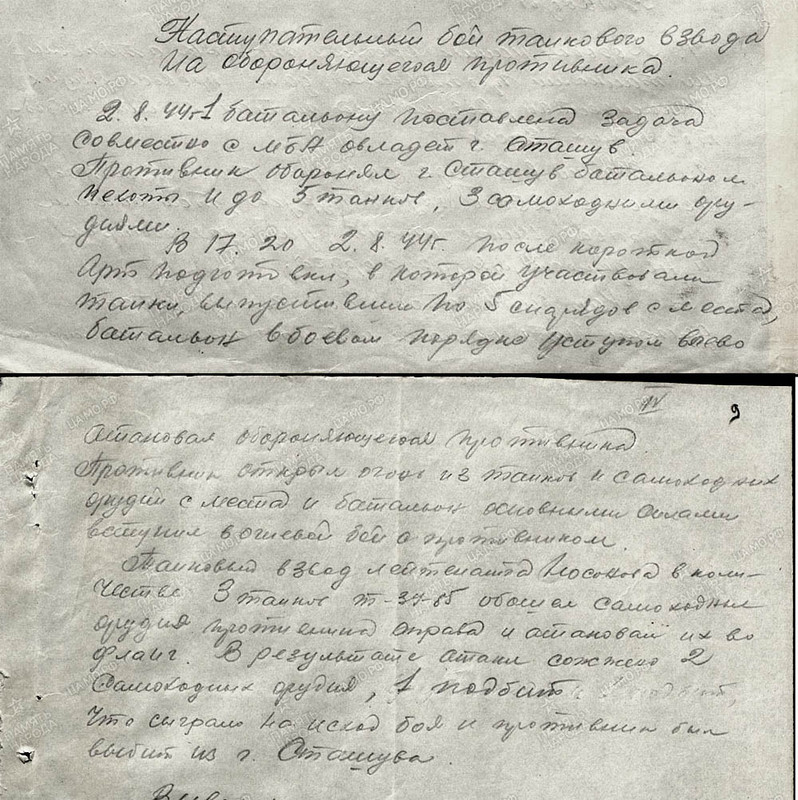 Наступательный бой танкового взвода
на обороняющегося противника.
2.8.44г. 1 батальону поставлена задача
совместно с МБА овладет г. Сташув.
Противник оборонял г. Сташув батальоном
пехоты и до 5 танков, 3 самоходными ору-
диями.
В 17.20 2.8.44г. после короткой
Артподготовки, в которой участвовали
танки, выпустившие по 5 снарядов с места,
батальон в боевом порядке уступом влево
IV 9
атаковал обороняющегося противника.
Противник открыл огонь из танков и самоходных
орудий с места и батальон основными силами
вступил в огневой бой с противником.
Танковый взвод лейтенанта в коли-
честве 3 танков Т-34-85 обошел самоходные
орудия противника справа и атаковал их во
фланг. В результате атаки сожжено 2
самоходных орудия, 1 подбит
Что сыграло на исход боя и противник был
выбит из г. Сташува.